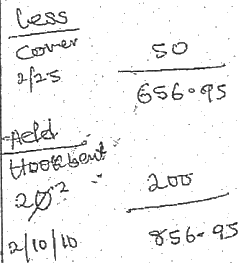 Less
Cover 50
2/25
656.95
Add
Hookbent
20² 200
2/10/10 856.95